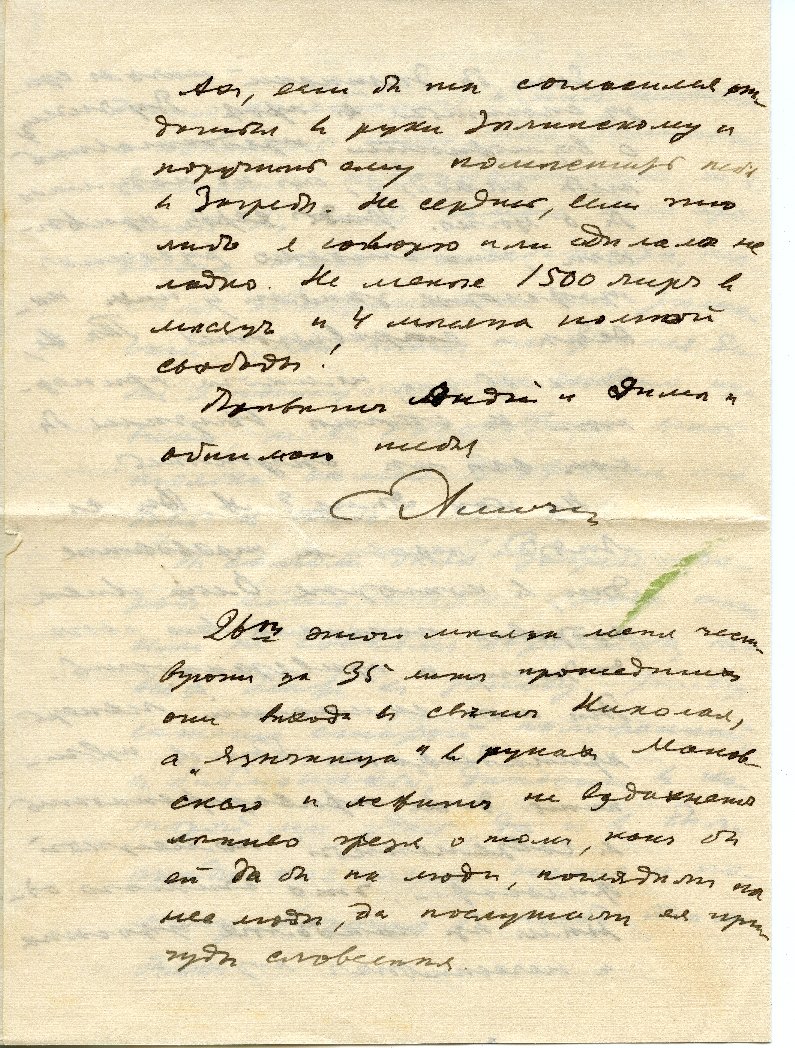 Ах, если бы ты согласился от-
даться в руки Зилинскому и
поручить ему помытарить тебя
и Загреба. Не сердись, если что
либо я говорю или сделала не
ладно. Не менее 1500 лир в
месяц и 4 месяца полной
свободы!
Привет и Дима и
обнимаю тебя

26го этого месяца меня чест-
вуют за 35 лет прошедших
от выхода в свет Николая,
а „Язычница“ в руках Маков-
ского и лежит не вздохнет
лениво грезя о том, как бы
ей да бы на люди, поглядели на
нее люди, да послушали ея при-
чуды словесныя.